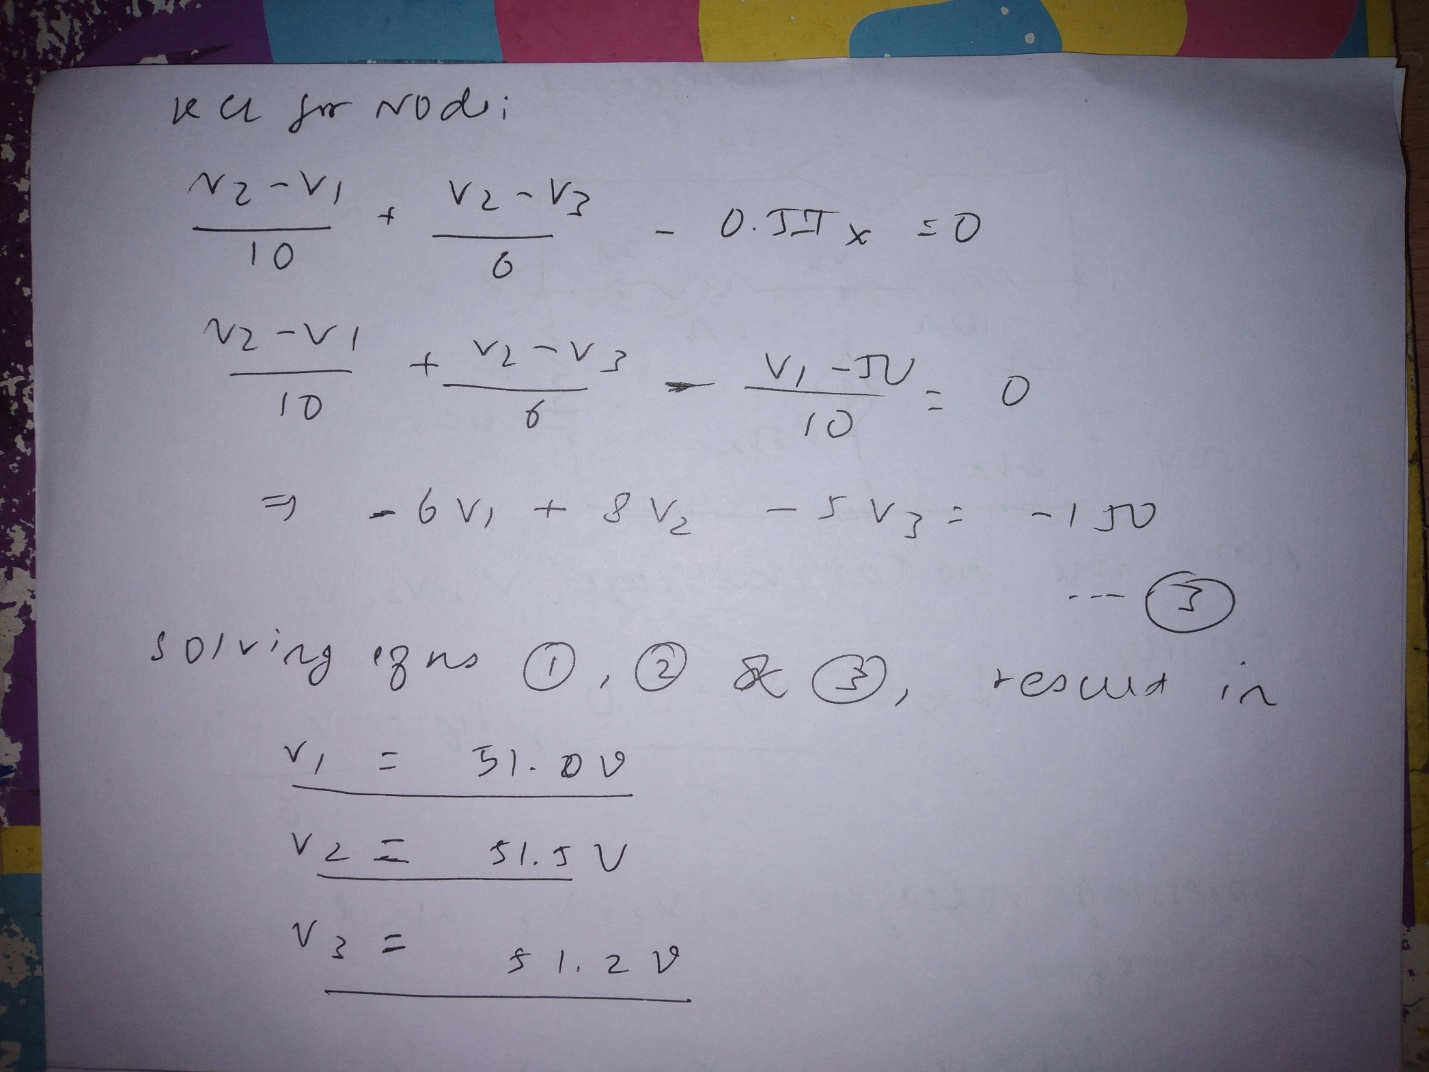 KCL for Node;
V2-V1/10 + V2-V3/6 - 0.5Ix = 0
V2-V1/10 + V2-V3/6 - V1-50/10 = 0
⇒ -6V1 + 8V2 - 5V3 = -150
--- ③
solving eqns ①, ② & ③, result in
V1 = 51.0V
V2 = 51.5V
V3 = 51.2V